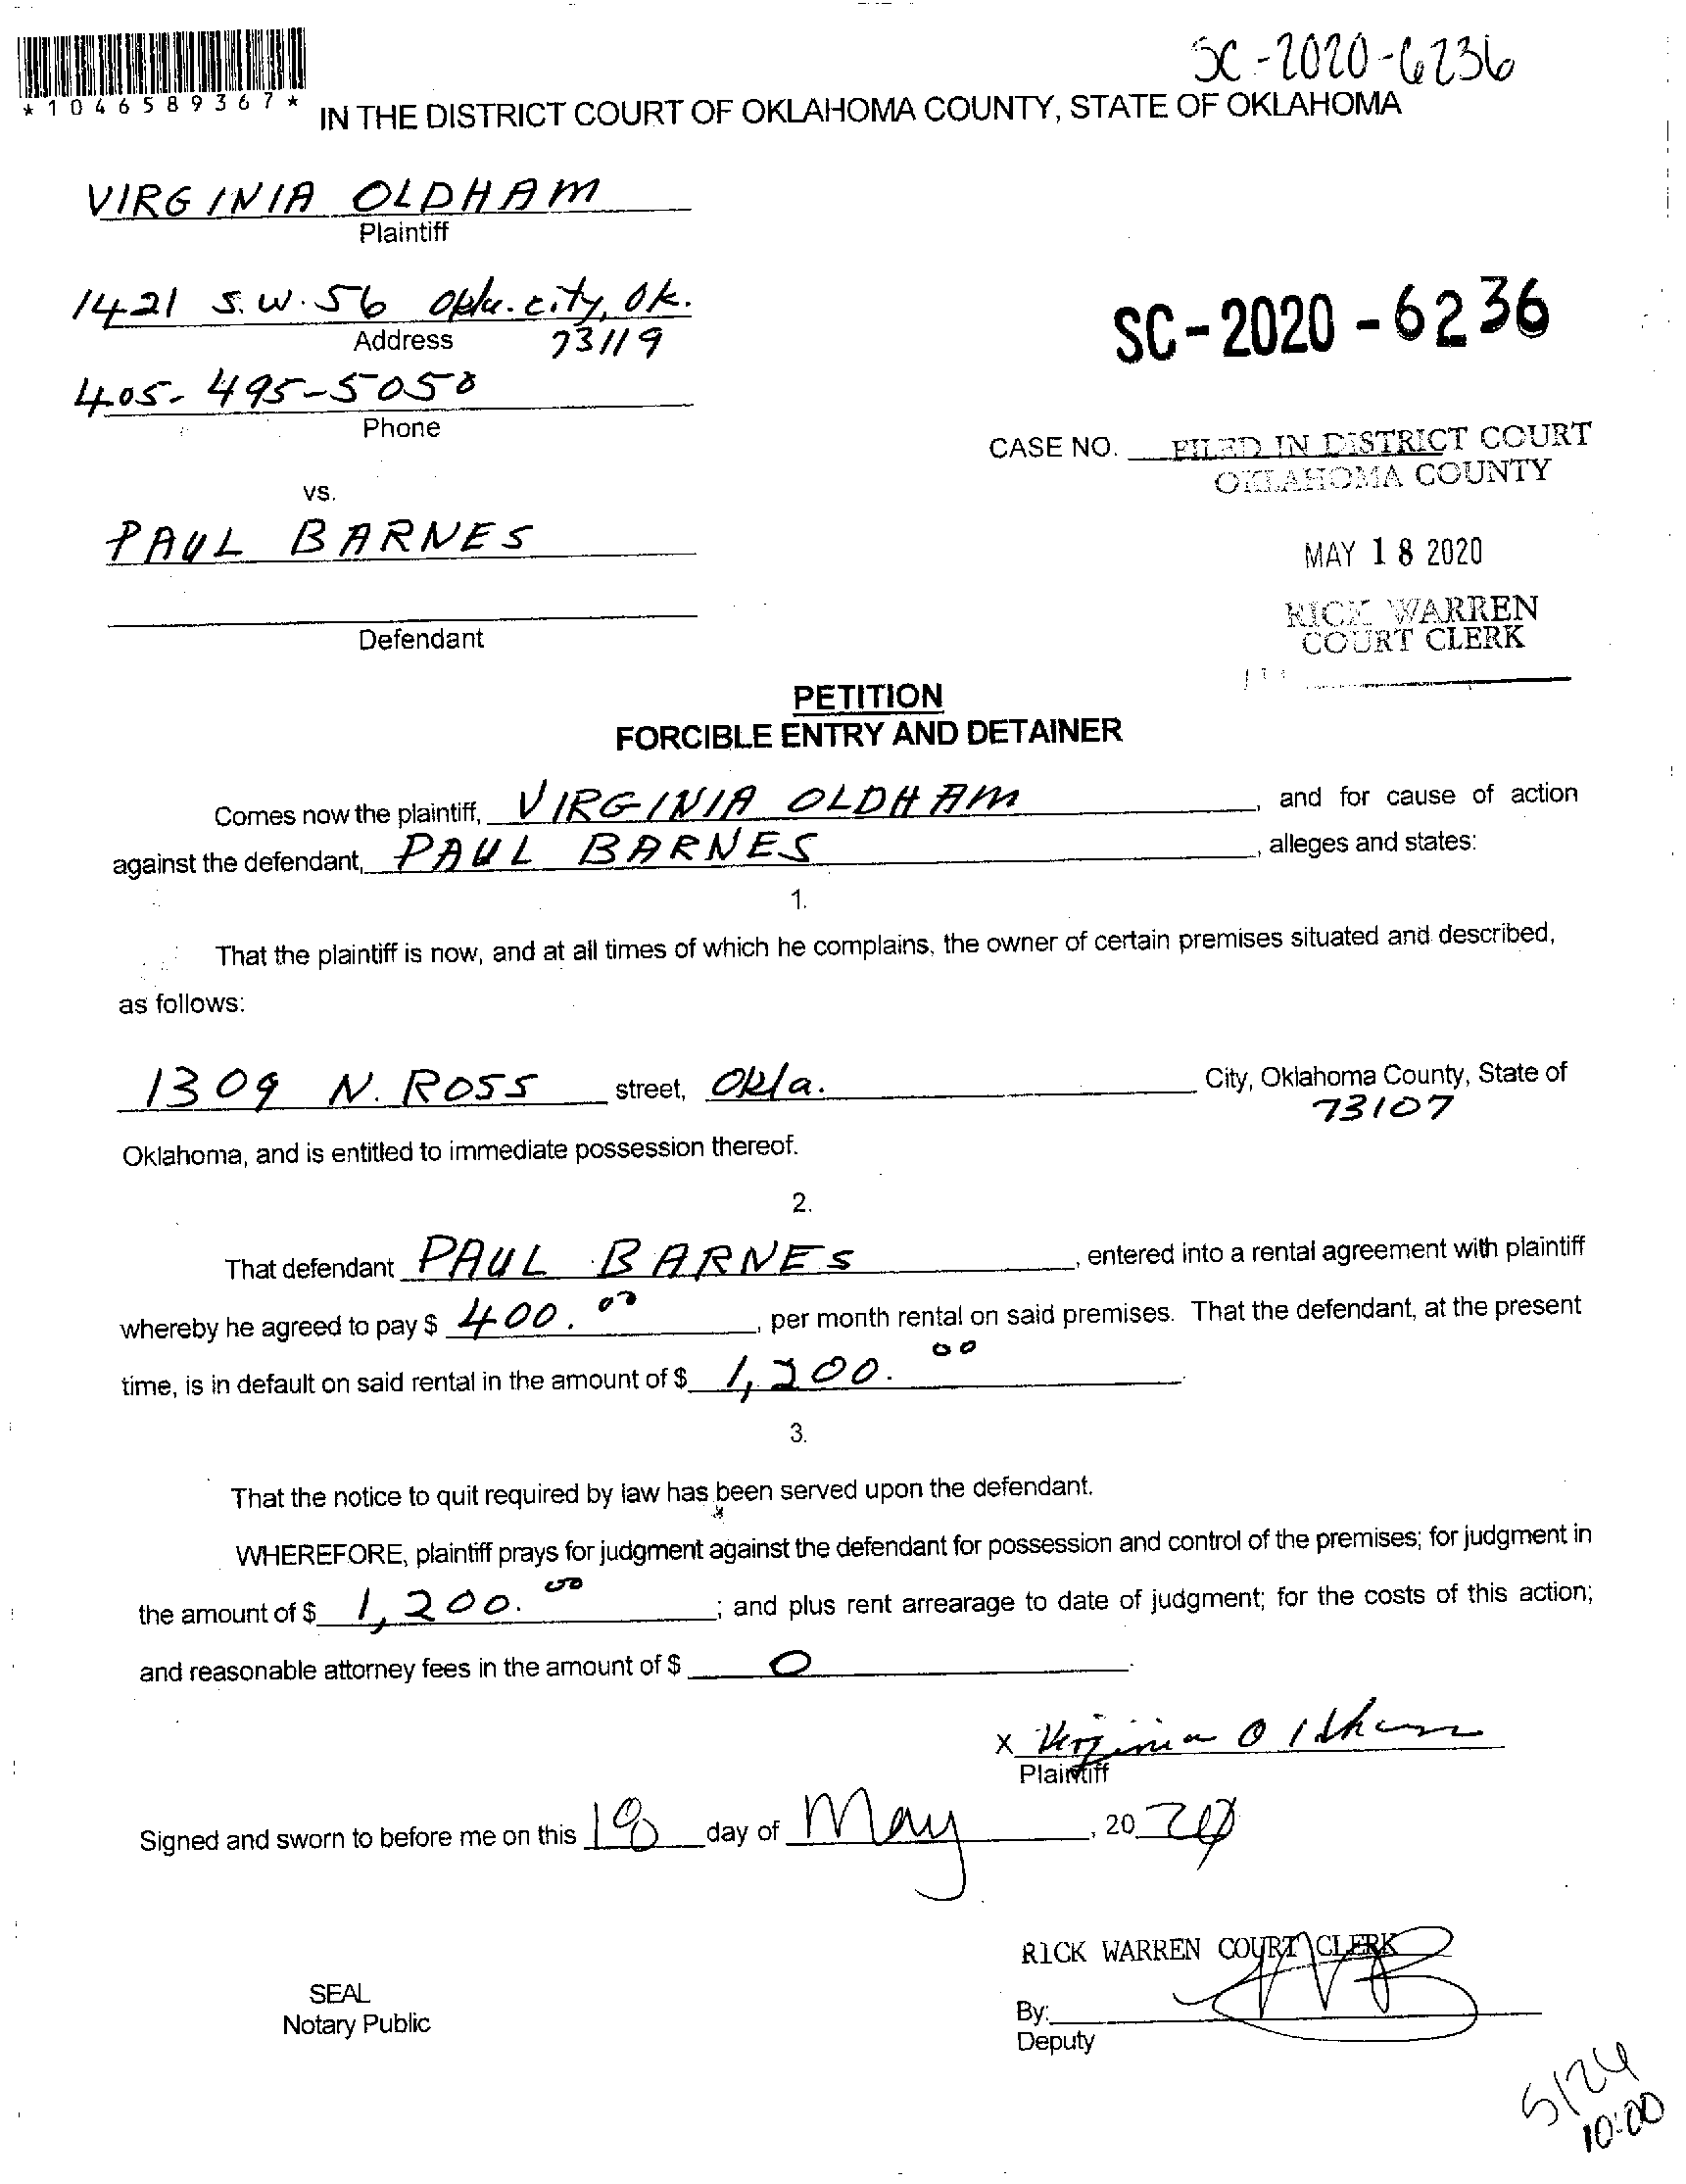 SC-2020-6236
*1046589367*
IN THE DISTRICT COURT OF OKLAHOMA COUNTY, STATE OF OKLAHOMA
VIRGINIA OLDHAM
Plaintiff
1421 S.W. 56 Okla. city, Ok.
Address 73119
405-495-5050
Phone
SC-2020-6236
CASE NO. FILED IN DISTRICT COURT
OKLAHOMA COUNTY
vs.
PAUL BARNES
MAY 18 2020
RICK WARREN
COURT CLERK
Defendant
PETITION
FORCIBLE ENTRY AND DETAINER
Comes now the plaintiff, VIRGINIA OLDHAM, and for cause of action
against the defendant, PAUL BARNES, alleges and states:
1.
That the plaintiff is now, and at all times of which he complains, the owner of certain premises situated and described,
as follows:
1309 N. ROSS street, Okla. City, Oklahoma County, State of
73107
Oklahoma, and is entitled to immediate possession thereof.
2.
That defendant PAUL BARNES, entered into a rental agreement with plaintiff
whereby he agreed to pay $ 400.00, per month rental on said premises. That the defendant, at the present
time, is in default on said rental in the amount of $ 1,200.00.
3.
That the notice to quit required by law has been served upon the defendant.
WHEREFORE, plaintiff prays for judgment against the defendant for possession and control of the premises; for judgment in
the amount of $ 1,200.00; and plus rent arrearage to date of judgment; for the costs of this action;
and reasonable attorney fees in the amount of $ 0.
X Virginia Oldham
Plaintiff
Signed and sworn to before me on this 18 day of May, 2020
RICK WARREN COURT CLERK
SEAL
Notary Public
By:
Deputy
10:00